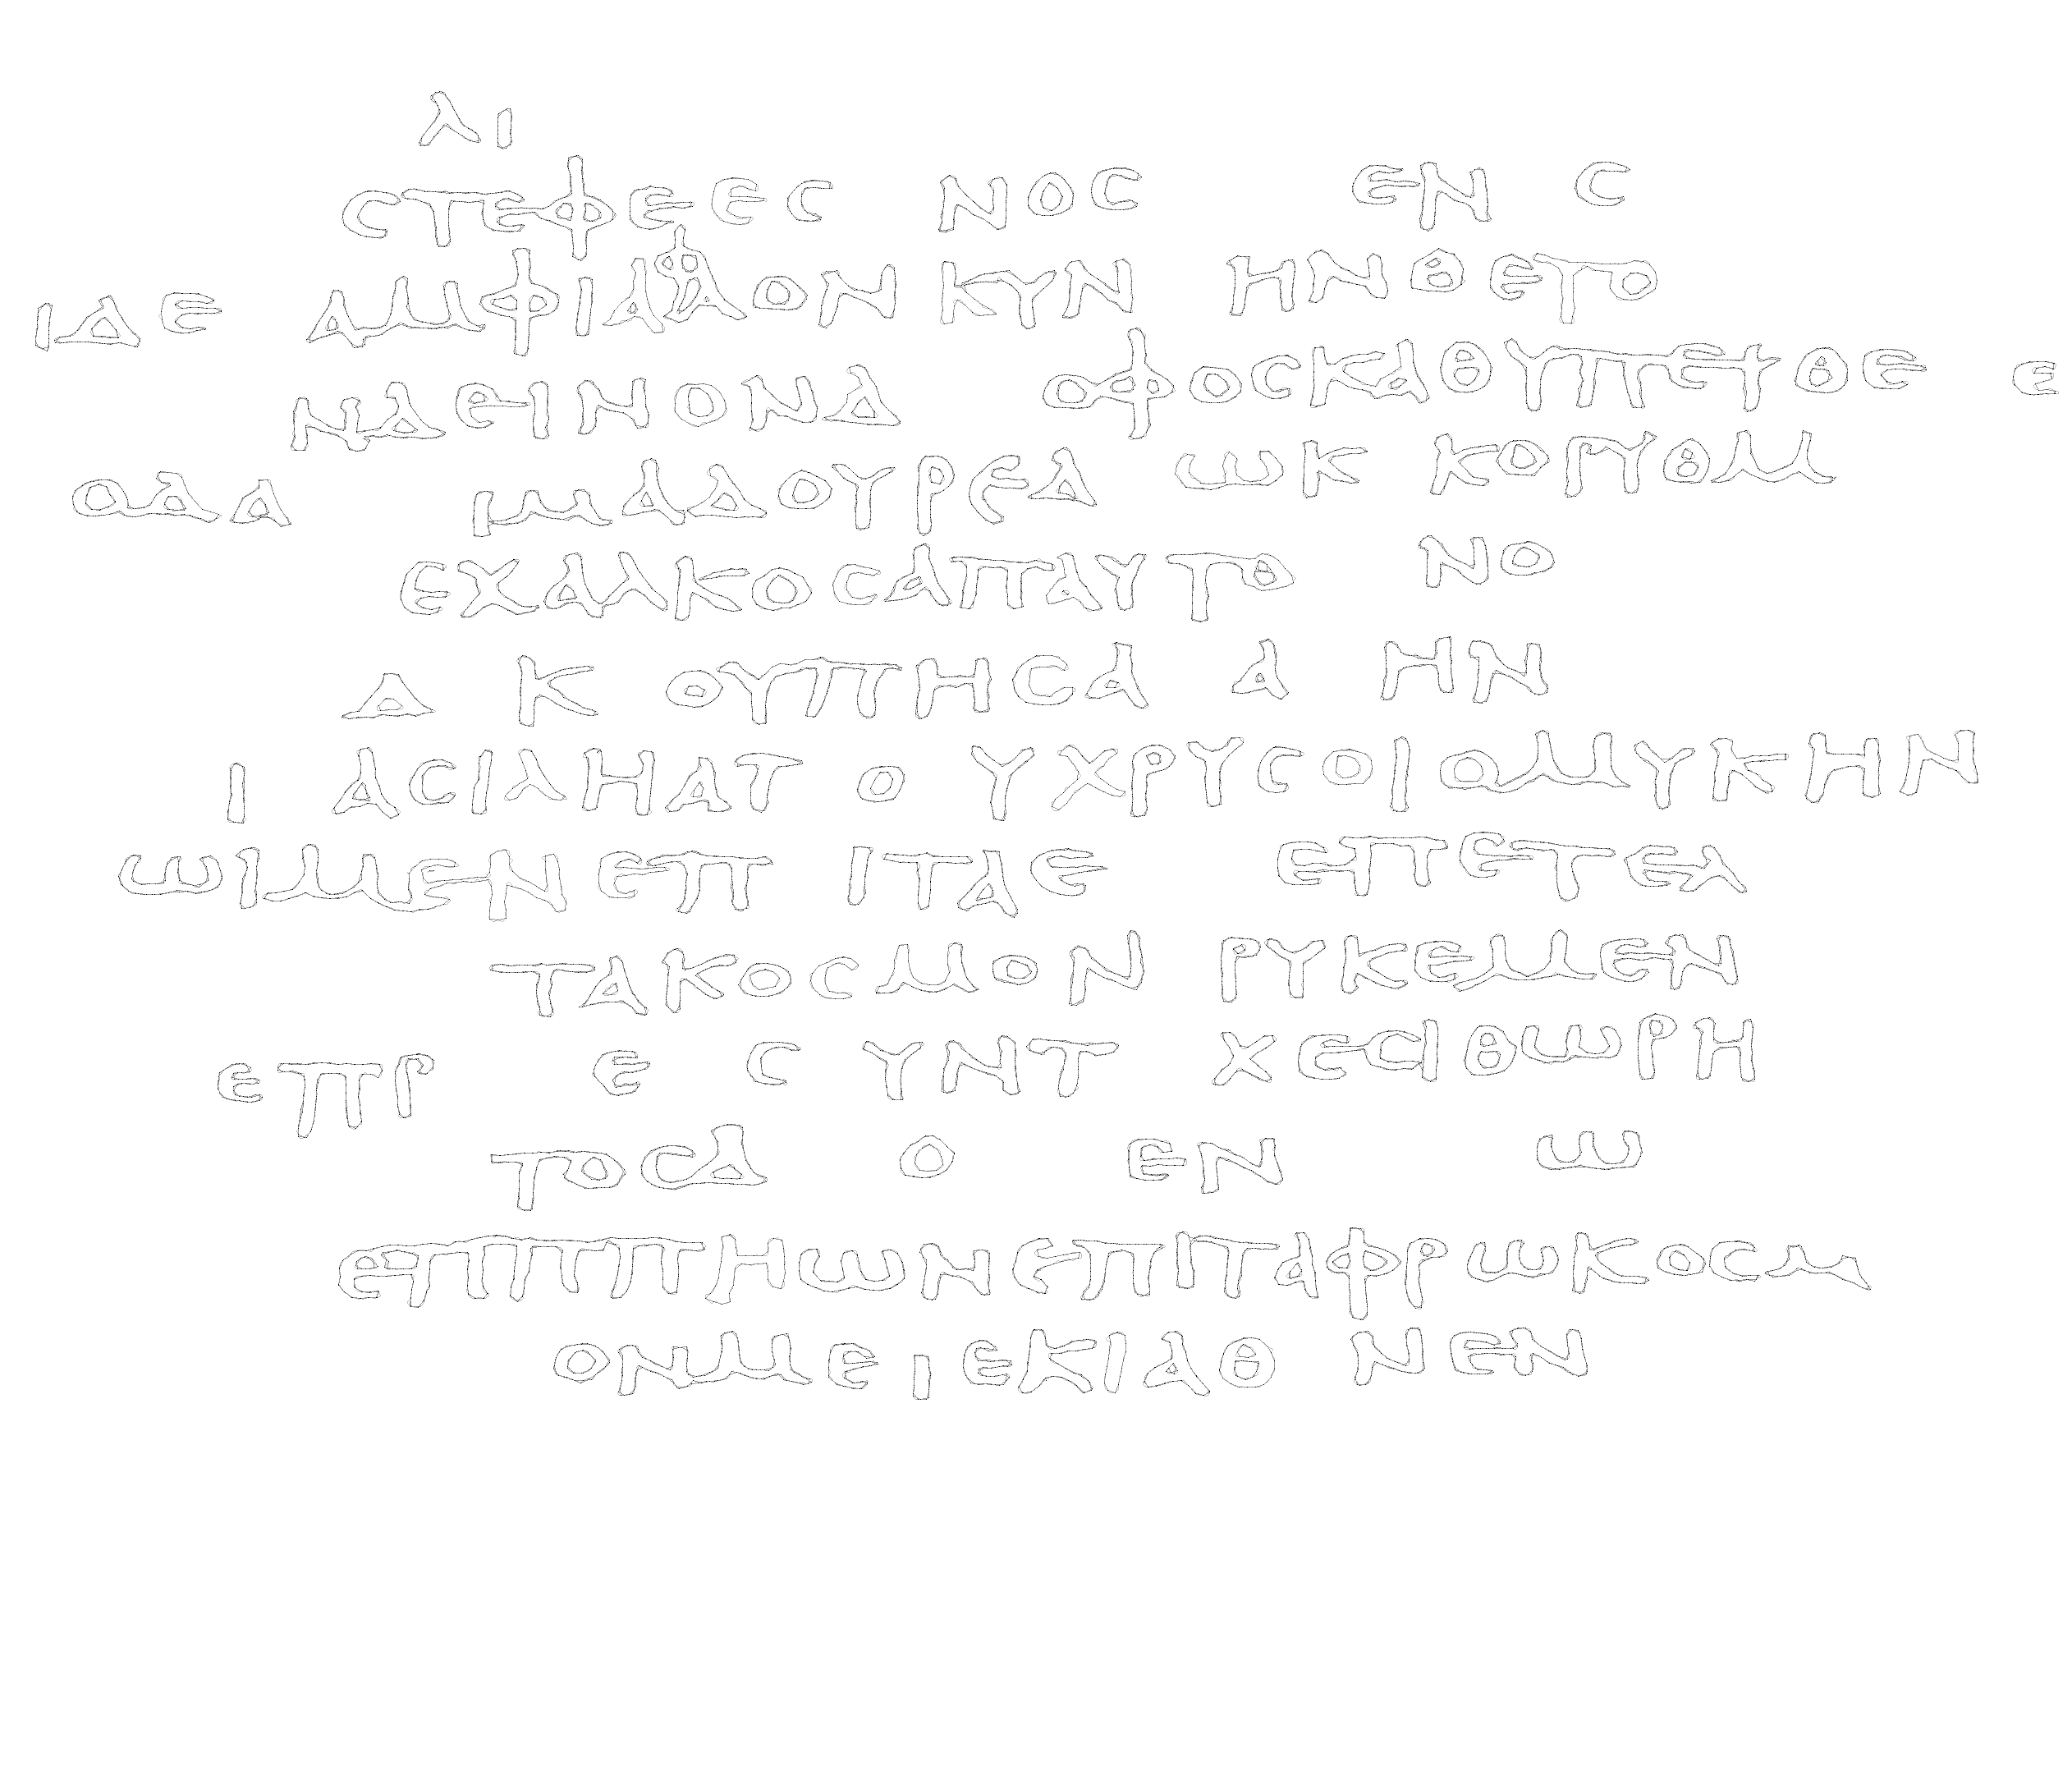 λι
στεφεες νος εν ς
ιδε αμφιαλφον κυν ηνθετο
ηδεινονδ οφοσκαθυπερθε ε
οδα ιμαδουρεδ ωκ κορυθμ
εχαλκοσαπαυτο νο
δ κ ουπησα α ην
ι ασιληατ ο υχρυσοιομυκην
ωιμενεπ ιταε επετελ
τακοσμον ρυκεμεν
επρ ε ς υντ χεσιθωρη
τοσδ ο εν ω
επππηωνεπιταφρωκοσμ
ονμε ιεκιαθ νεν